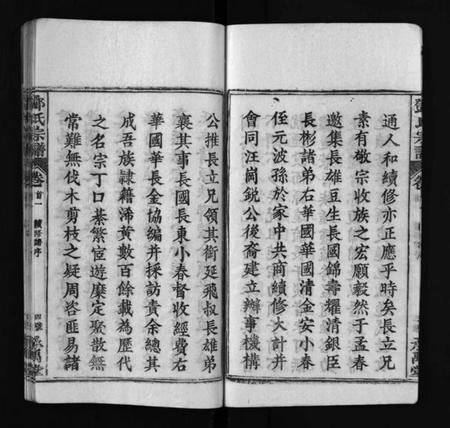 通人和續修亦正應乎時矣長立兄
素有敬宗收族之宏願毅然于孟春
邀集長雄豆生長國錦壽耀清銀臣
長彬諸弟右華國華國清金安小春
侄元波孫於家中共商續修大計并
會同汪崗銳公後裔建立辦事機構
公推長立兄領其銜延飛叔長雄弟
襄其事長國長東小春督收經費右
華國華長金協編并採訪責余總其
成吾族隸籍浠黄數百餘載為歷代
之名宗丁口綦繁宦遊靡定聚散無
常難無伐木剪枝之疑周咨匪易諸
鄧氏宗譜
卷首一
續修譜序
四號